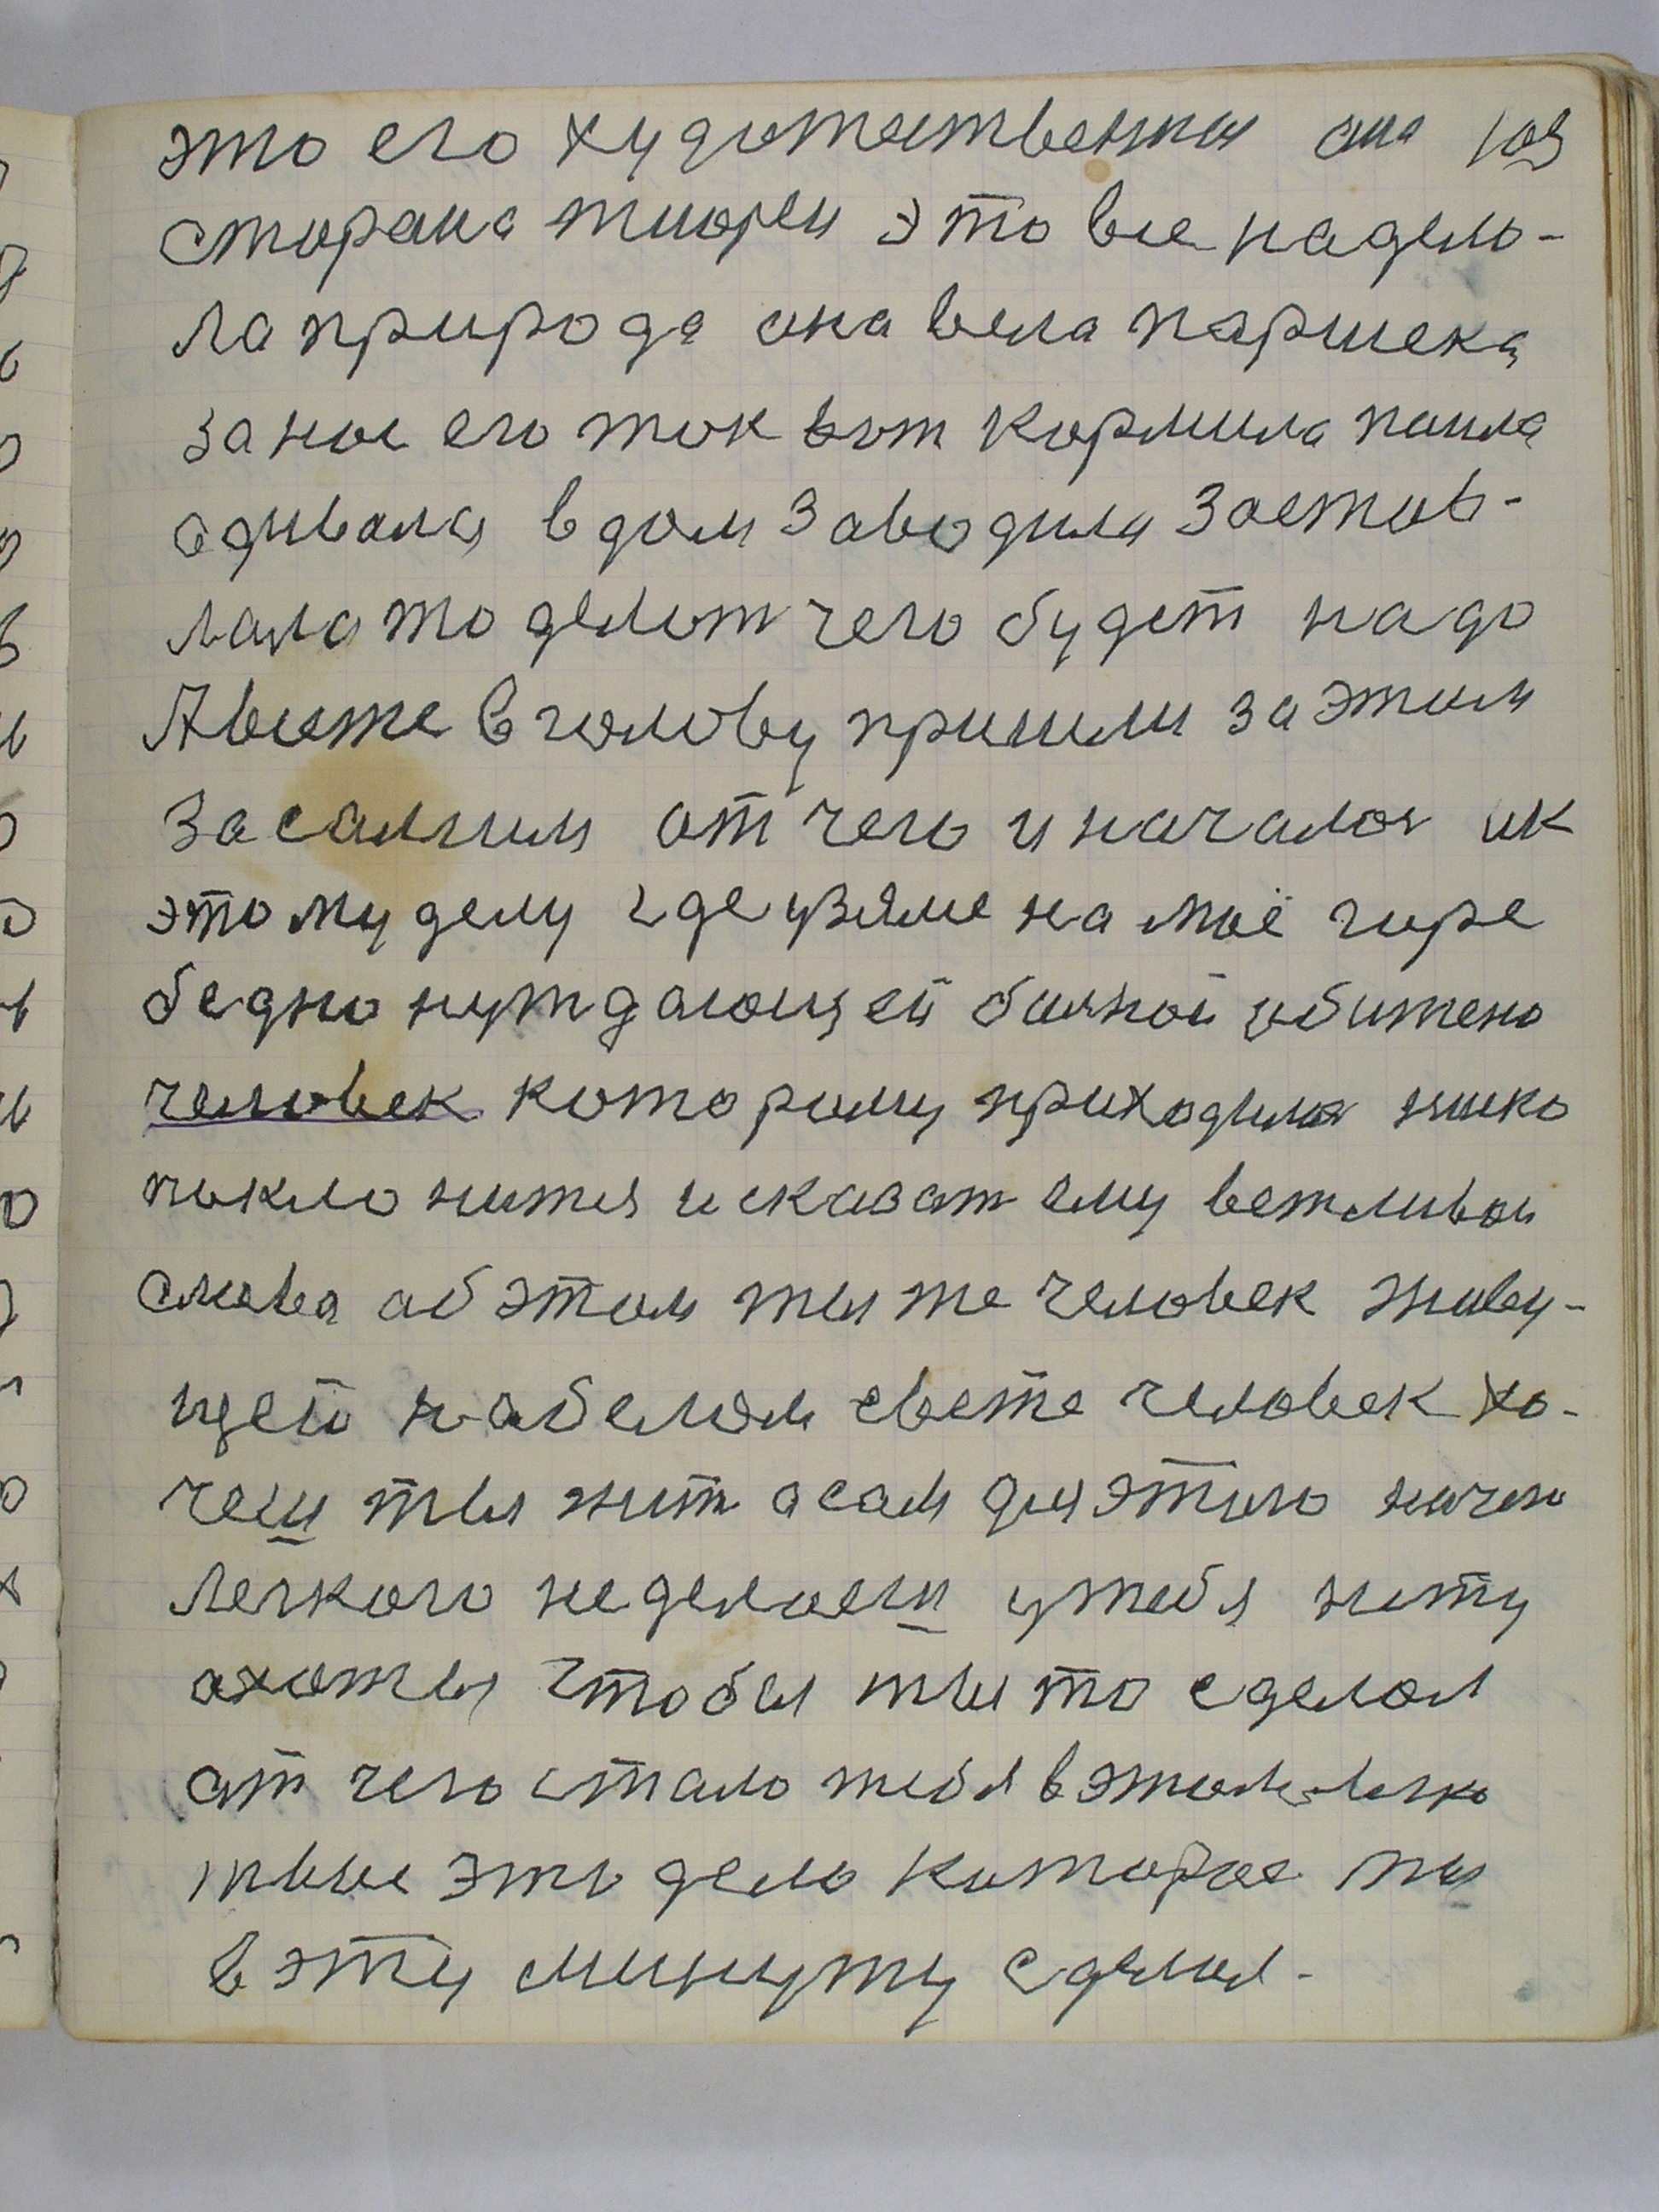 это его художественная она 103
сторана тиорея это все надело-
ла природа она вела паршека
за нос его ток вот кормила паила
одивала в дом заводила застов-
лала то делот чего будет надо
Авиже в голову пришли за этим
за самим от чего и началос ик
этому делу где узяме на моё горе
бедно нуждающей болной обижено
человек которому приходилос нико
поклонитя и сказат ему вежливои
слова об этом ты же человек живу-
щей на белом свете человек хо-
чеш ты жит а сам для этого ничего
легкого не делаеш у тебя нету
охоты чтобы ты то сделал
от чего стало тебя в этом легко
твое это дело которое ты
в эту минуту сделал-